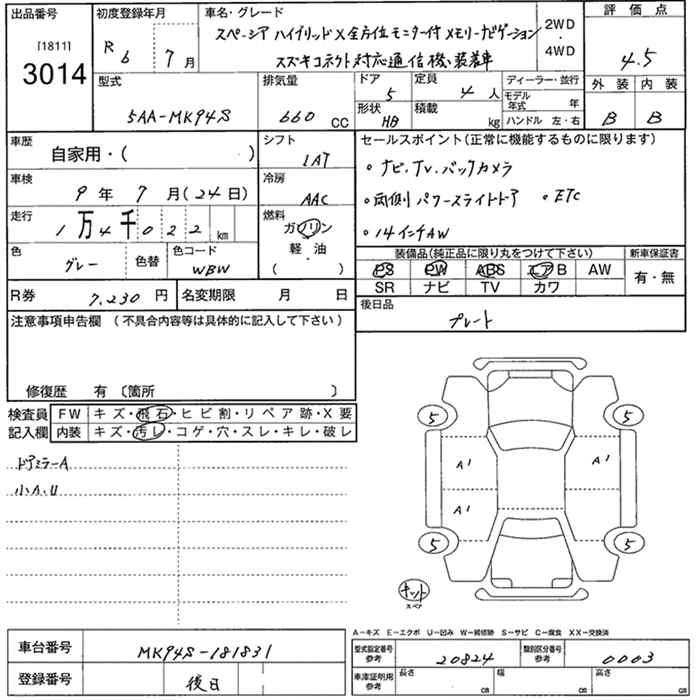 出品番号 初度登録年月 車名・グレード 2WD・4WD 評価点
[1811]
3014
R6 7月
スペーシア ハイブリッドX 全方位モニター付 メモリーナビゲーション
スズキコネクト対応通信機装着車
4.5
型式 排気量 ドア 定員 ディーラー・並行 外装 内装
5AA-MK94S 660 CC 5 4人 モデル年式 年
形状 積載 B B
HB kg ハンドル 左・右
車歴 シフト セールスポイント(正常に機能するものに限ります)
自家用・( ) IAT
・ナビ、TV、バックカメラ
車検 冷房
9年 7月(24日) AAC
・両側パワースライドドア ・ETC
走行 燃料
1万4千022km ガソリン
・14インチAW
軽・油
( ・ )
色 色替 色コード
グレー WBW
装備品(純正品に限り丸をつけて下さい) 新車保証書
PS PW ABS エアB AW 有・無
SR ナビ TV カワ
R券 7,230円 名変期限 月 日
後日品
プレート
注意事項申告欄 (不具合内容等は具体的に記入して下さい)
修復歴 有 〔箇所 〕
検査員 FW キズ・飛石・ヒビ割・リペア跡・X要
記入欄 内装 キズ・汚レ・コゲ・穴・スレ・キレ・破レ
ドアミラーA
小A、U
5 5
A1 A1
A1
5 5
キット
スペア
A－キズ E－エクボ U－凹み W－補修跡 S－サビ C－腐食 XX－交換済
車台番号 MK94S-181831
型式指定番号 参考 20824 類別区分番号 参考 0003
登録番号 後日
車庫証明用 参考 長さ cm 幅 cm 高さ cm